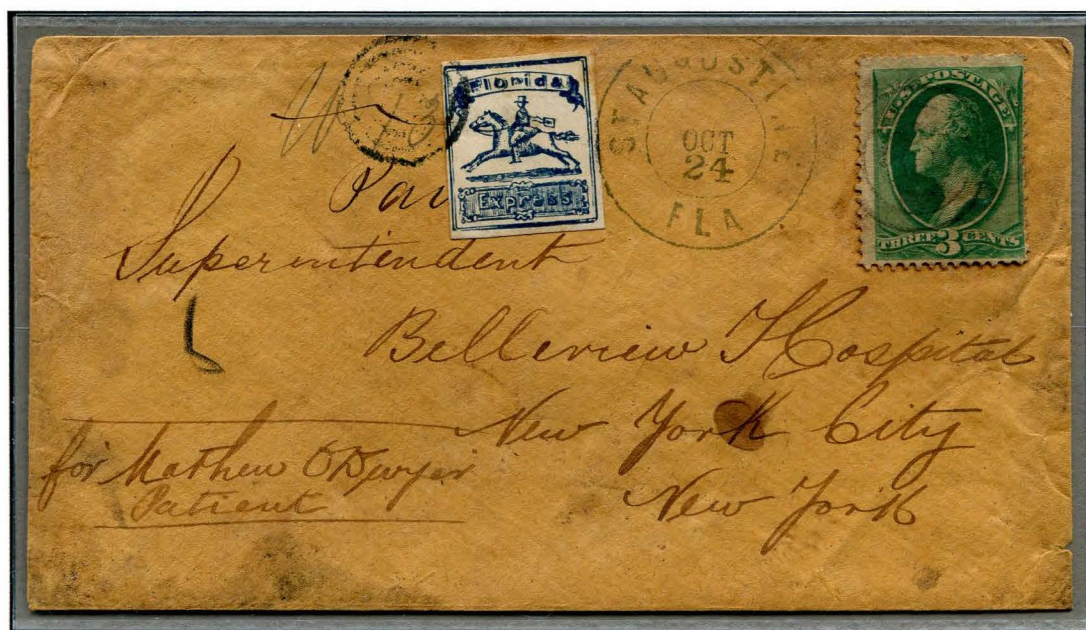 Florida
Express
ST. AUGUSTINE
OCT
24
FLA
U.S. POSTAGE
THREE 3 CENTS
Superintendent
Belleview Hospital
New York City
New York
for Mathew O'Dwyer
Patient